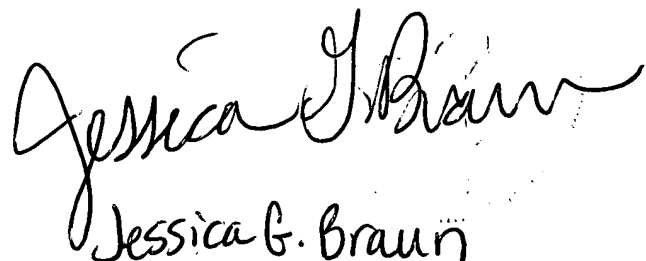 Jessica G. Braun
Jessica G. Braun